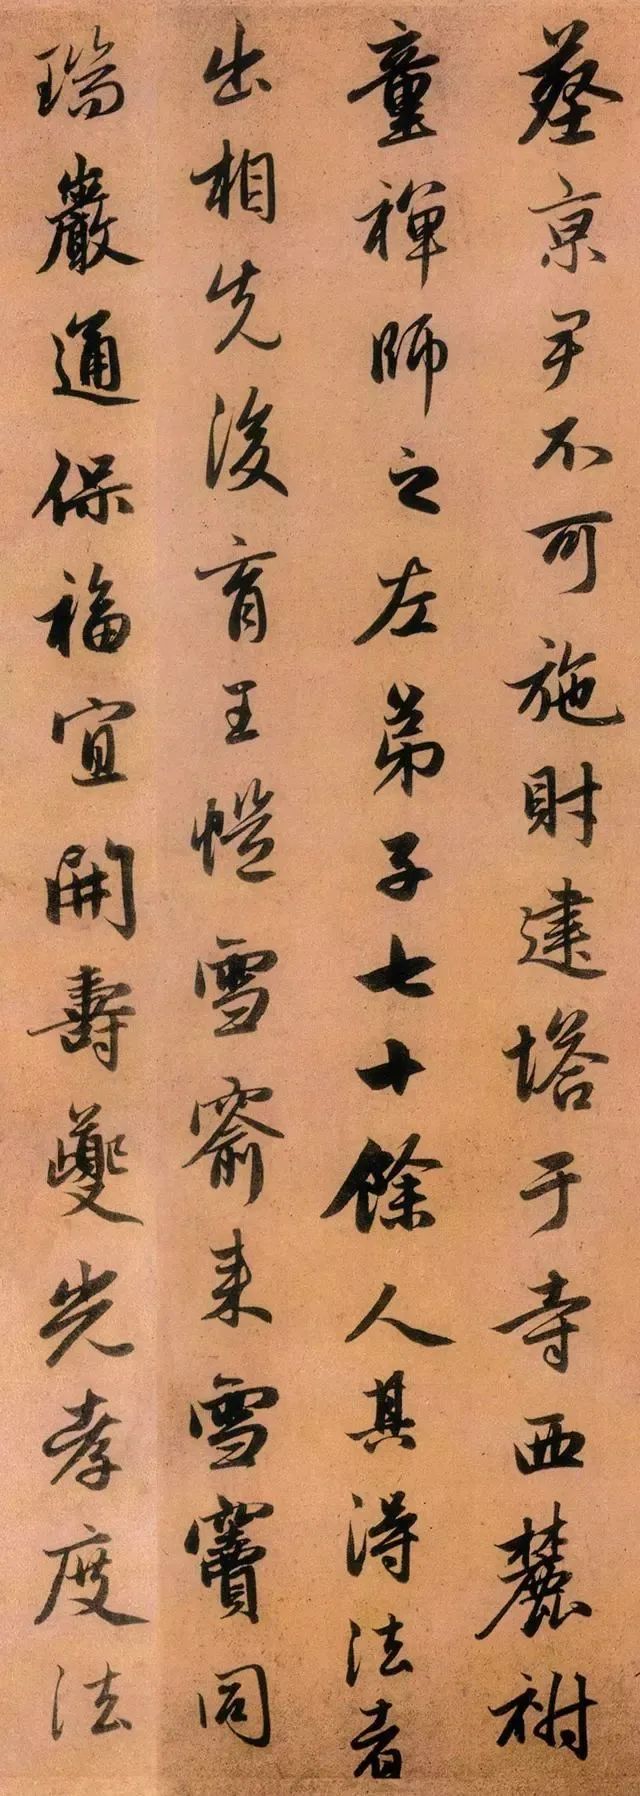 塟京尹不可施財建塔于寺西麓祔
童禪師之左弟子七十餘人其得法者
出相先後育王愷雪窬来雪竇同
瑞巖通保福宜開壽夔光孝度法